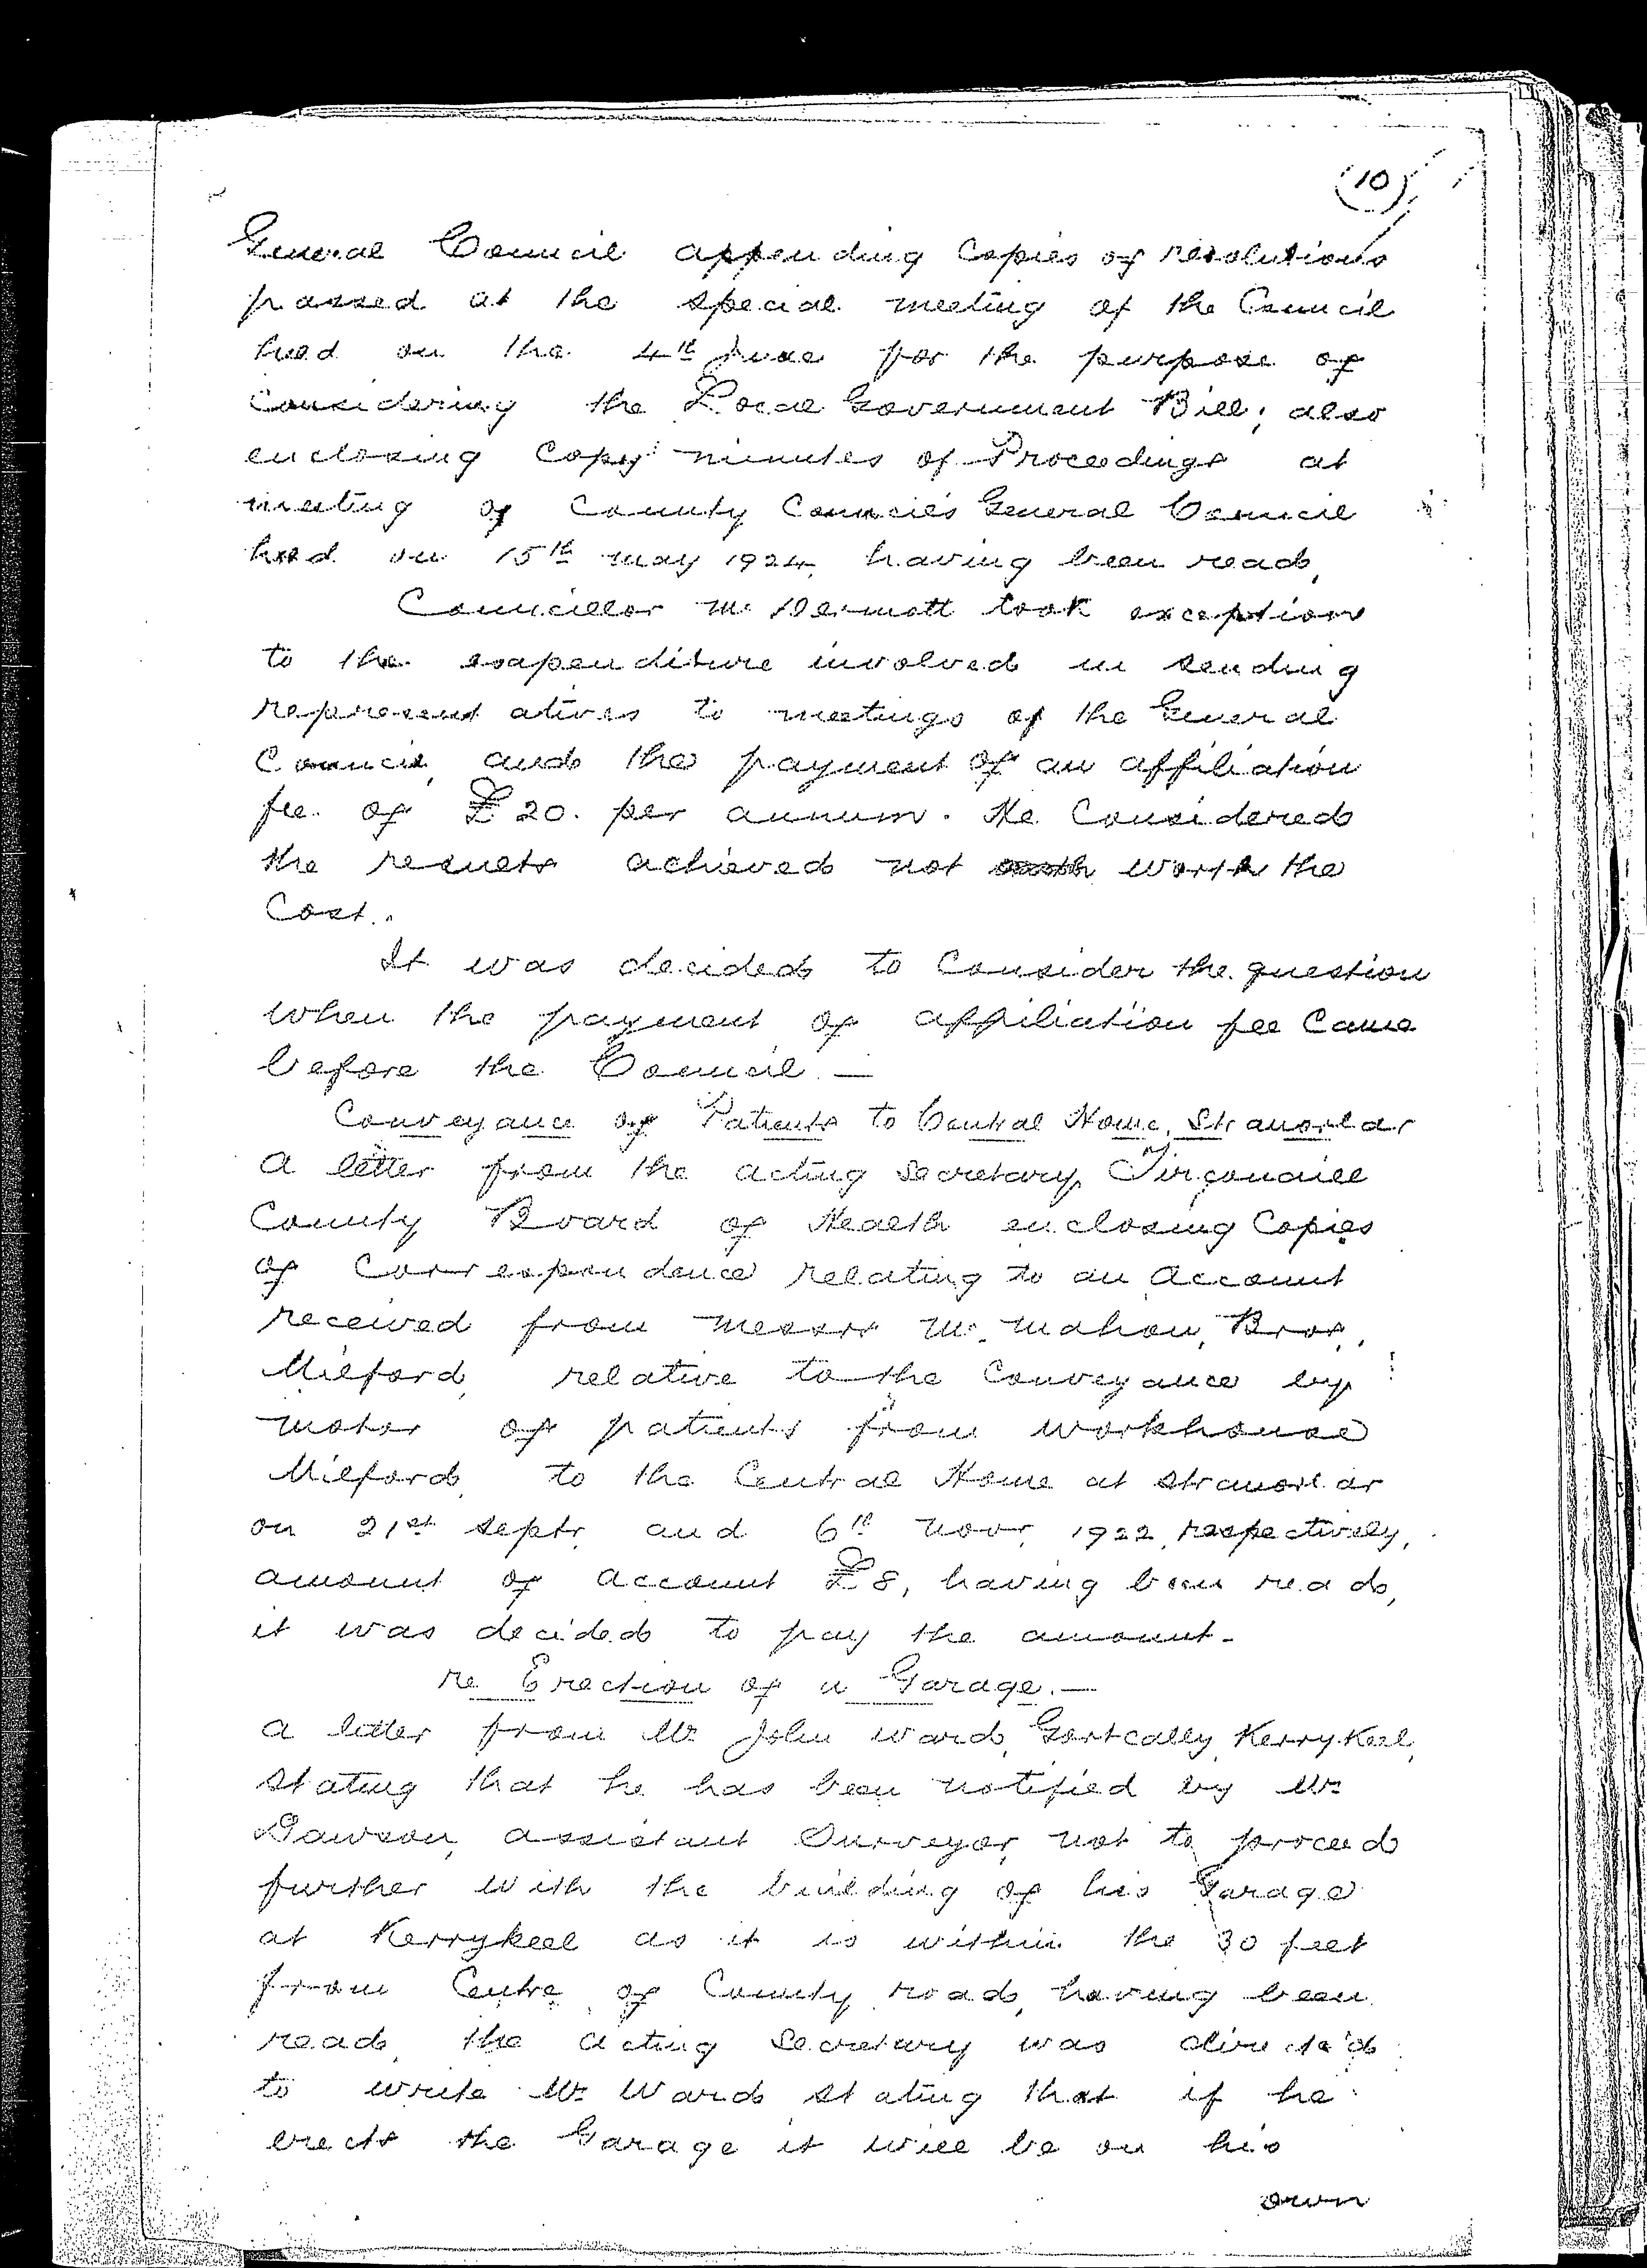 (10)
General Council appending Copies of resolutions
passed at the special meeting of the Council
held on the 4th June for the purpose of
Considering the Local Government Bill; also
enclosing Copy minutes of Proceedings at
meeting of County Councils General Council
held on 15th may 1924, having been read,
Councillor Mc Dermott took exception
to the expenditure involved in sending
representatives to meetings of the General
Council, and the payment of an affiliation
fee of £20. per annum. He Considered
the results achieved not worth the
Cost.
It was decided to Consider the question
when the payment of affiliation fee Came
before the Council. —
Conveyance of Patients to Central Home, Stranorlar
A letter from the acting Secretary, Tirconaill
County Board of Health enclosing Copies
of Correspondence relating to an Account
received from Messrs Mc Mahon, Bros,
Milford, relative to the Conveyance by
motor of patients from workhouse
Milford, to the Central Home at Stranorlar
on 21st Septr. and 6th Novr. 1922, respectively,
amount of account £8, having been read,
it was decided to pay the amount.
re Erection of a Garage. —
A letter from Mr John Ward, Gortcally, Kerrykeel,
stating that he has been notified by Mr
Dawson, assistant Surveyor, not to proceed
further with the building of his Garage
at Kerrykeel as it is within the 30 feet
from Centre of County road, having been
read, the acting Secretary was directed
to write Mr Ward stating that if he
erects the Garage it will be on his
own